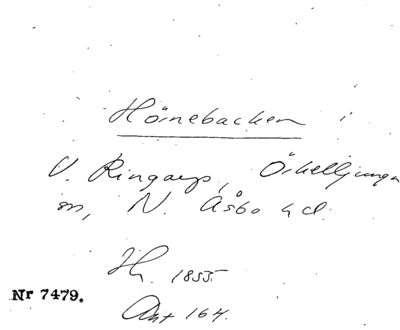 Hörnebacken i
V. Ringarp, Örkelljunga
sn, N. Åsbo hd.
Jh. 1855.
Nr 7479.
Ant 164.